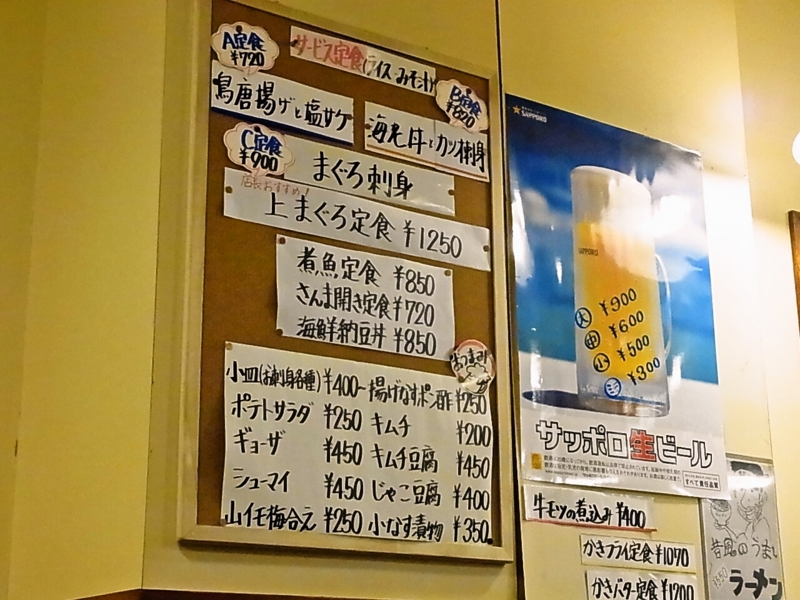 A定食
¥720
サービス定食(ライス・みそ汁)
鳥唐揚げと塩サケ
B定食
¥820
海老丼とカツオ刺身
C定食
¥900
まぐろ刺身
店長おすすめ!
上まぐろ定食 ¥1250
煮魚定食 ¥850
さんま開き定食 ¥720
海鮮納豆丼 ¥850
おつまみ
小皿(お刺身各種) ¥400-
揚げなすポン酢 ¥250
ポテトサラダ ¥250
キムチ ¥200
ギョーザ ¥450
キムチ豆腐 ¥450
シューマイ ¥450
じゃこ豆腐 ¥400
山イモ梅合え ¥250
小なす漬物 ¥350
SAPPORO
SAPPORO
大 ¥900
中 ¥600
小 ¥500
ミニ ¥300
サッポロ生ビール
すべて責任品質
牛モツの煮込み ¥400
かきフライ定食 ¥1070
かきバター定食 ¥1200
昔風のうまい
ラーメン